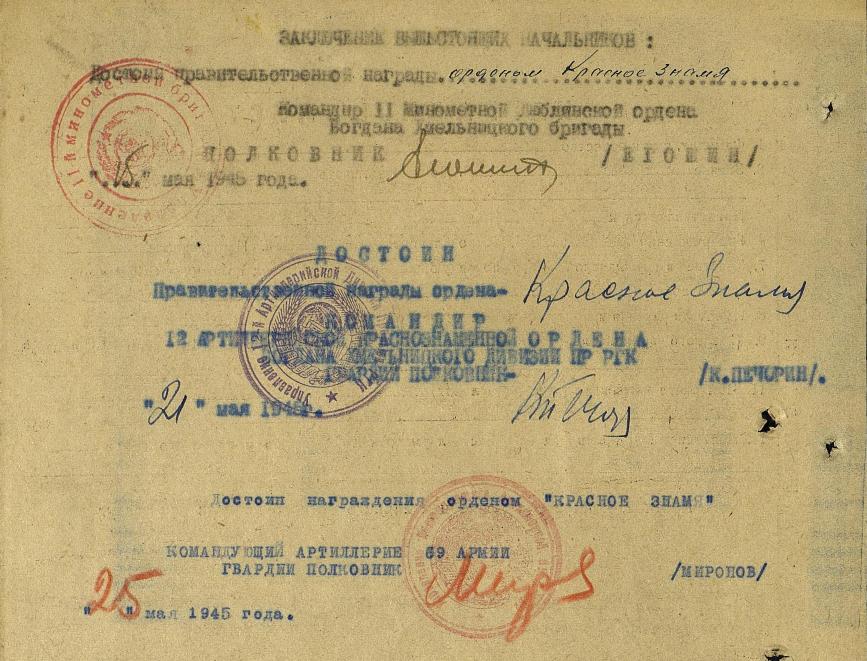 ЗАКЛЮЧЕНИЕ ВЫШЕСТОЯЩИХ НАЧАЛЬНИКОВ :
Достоин правительственной награды. орденом Красное Знамя
Командир II Минометной Люблинской ордена
Богдана Хмельницкого бригады
ПОЛКОВНИК /ЕГОШИН/
"15." мая 1945 года.
ДОСТОИН
Правительственной награды ордена- Красное Знамя
КОМАНДИР
12 АРТИЛЛЕРИЙСКОЙ КРАСНОЗНАМЕННОЙ ОРДЕНА
БОГДАНА ХМЕЛЬНИЦКОГО ДИВИЗИИ ПР РГК
ГВАРДИИ ПОЛКОВНИК- /К.ПЕЧОРИН/.
"21" мая 1945г.
Достоин награждения орденом "КРАСНОЕ ЗНАМЯ"
КОМАНДУЮЩИЙ АРТИЛЛЕРИЕ 69 АРМИИ
ГВАРДИИ ПОЛКОВНИК /МИРОНОВ/
"25" мая 1945 года.